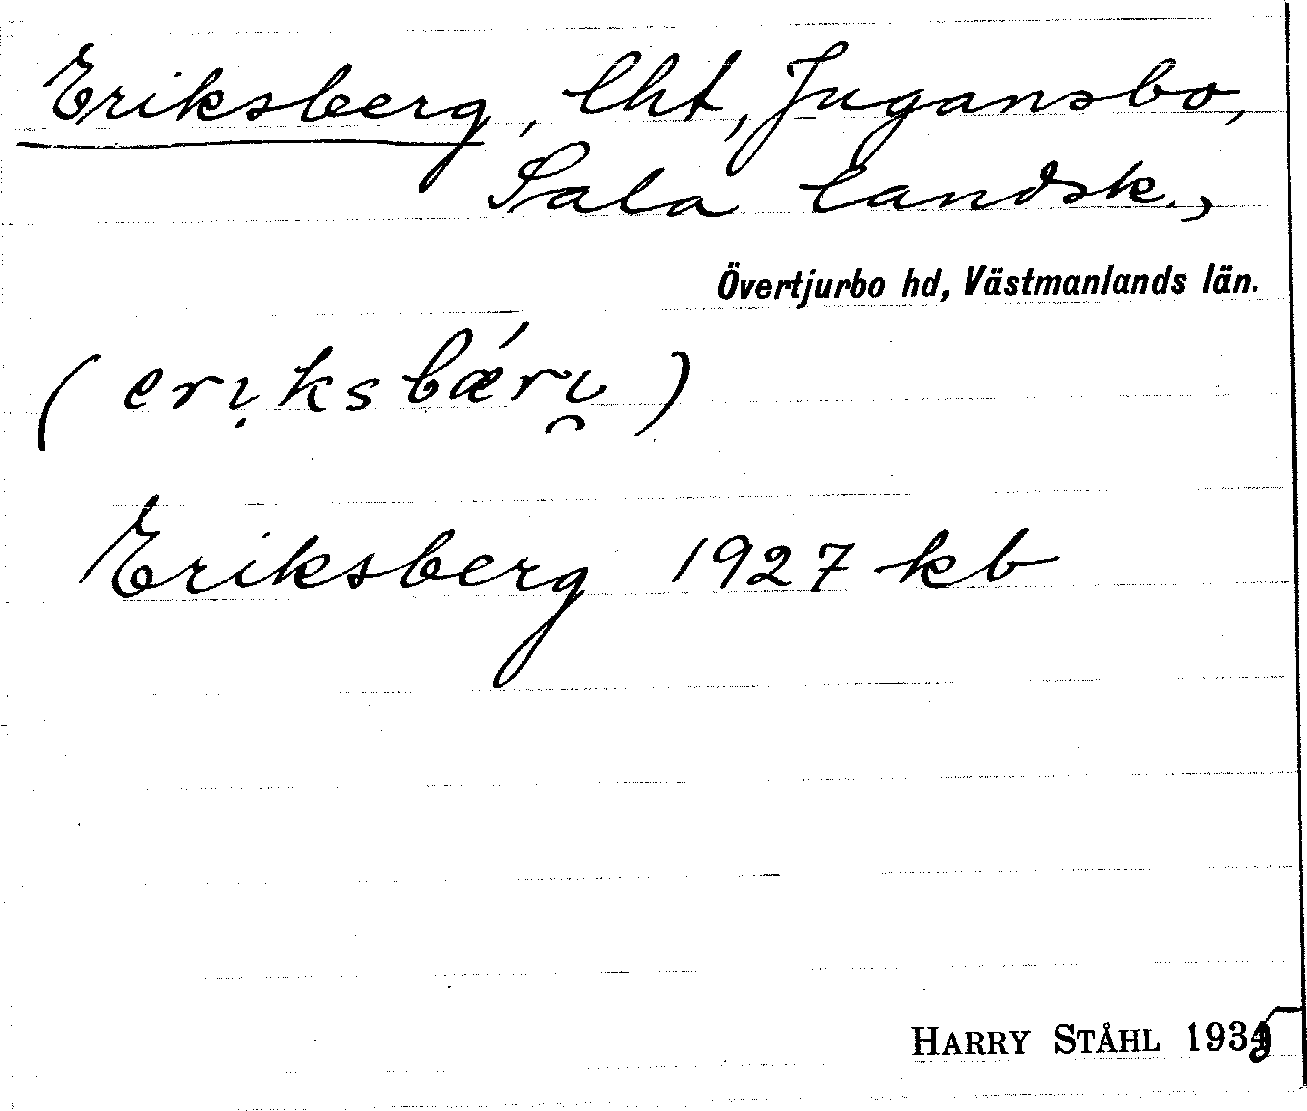 Eriksberg, lht, Jugansbo,
Sala landsk.,
Övertjurbo hd, Västmanlands län.
(erịksbǽri̯)
Eriksberg 1927 kb
HARRY STÅHL 1935